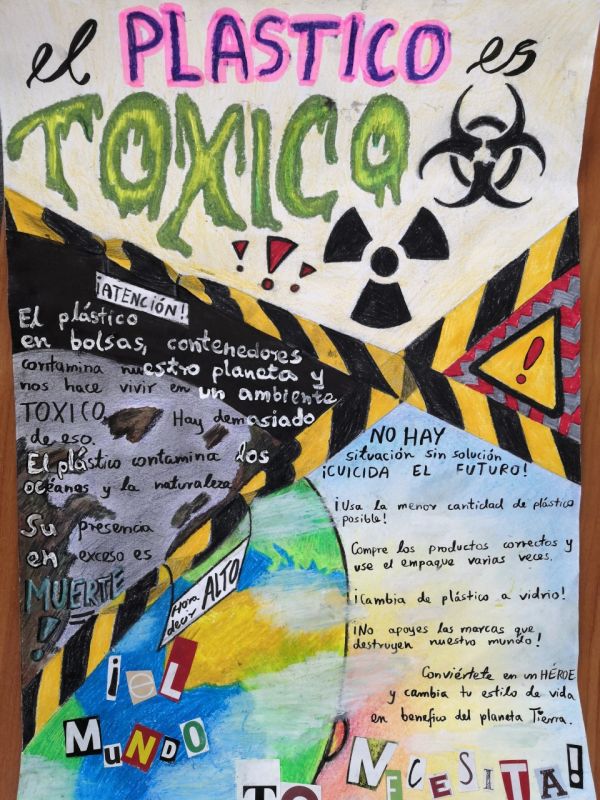 el PLASTICO es
TOXICO
!!!
¡ATENCIÓN!
El plástico
en bolsas, contenedores
contamina nuestro planeta y
nos hace vivir en un ambiente
TOXICO. Hay demasiado
de eso.
El plástico contamina los
océanos y la naturaleza
Su presencia
en exceso es
MUERTE
!!
!
Hora
decir ALTO
NO HAY
situación sin solución
¡CUICIDA EL FUTURO!
¡Usa la menor cantidad de plástico
posible!
Compre los productos correctos y
use el empaque varias veces.
¡Cambia de plástico a vidrio!
¡No apoyes las marcas que
destruyen nuestro mundo!
Conviértete en un HÉROE
y cambia tu estilo de vida
en benefico del planeta Tierra.
¡eL
MuNDO
TO
NECESITA!